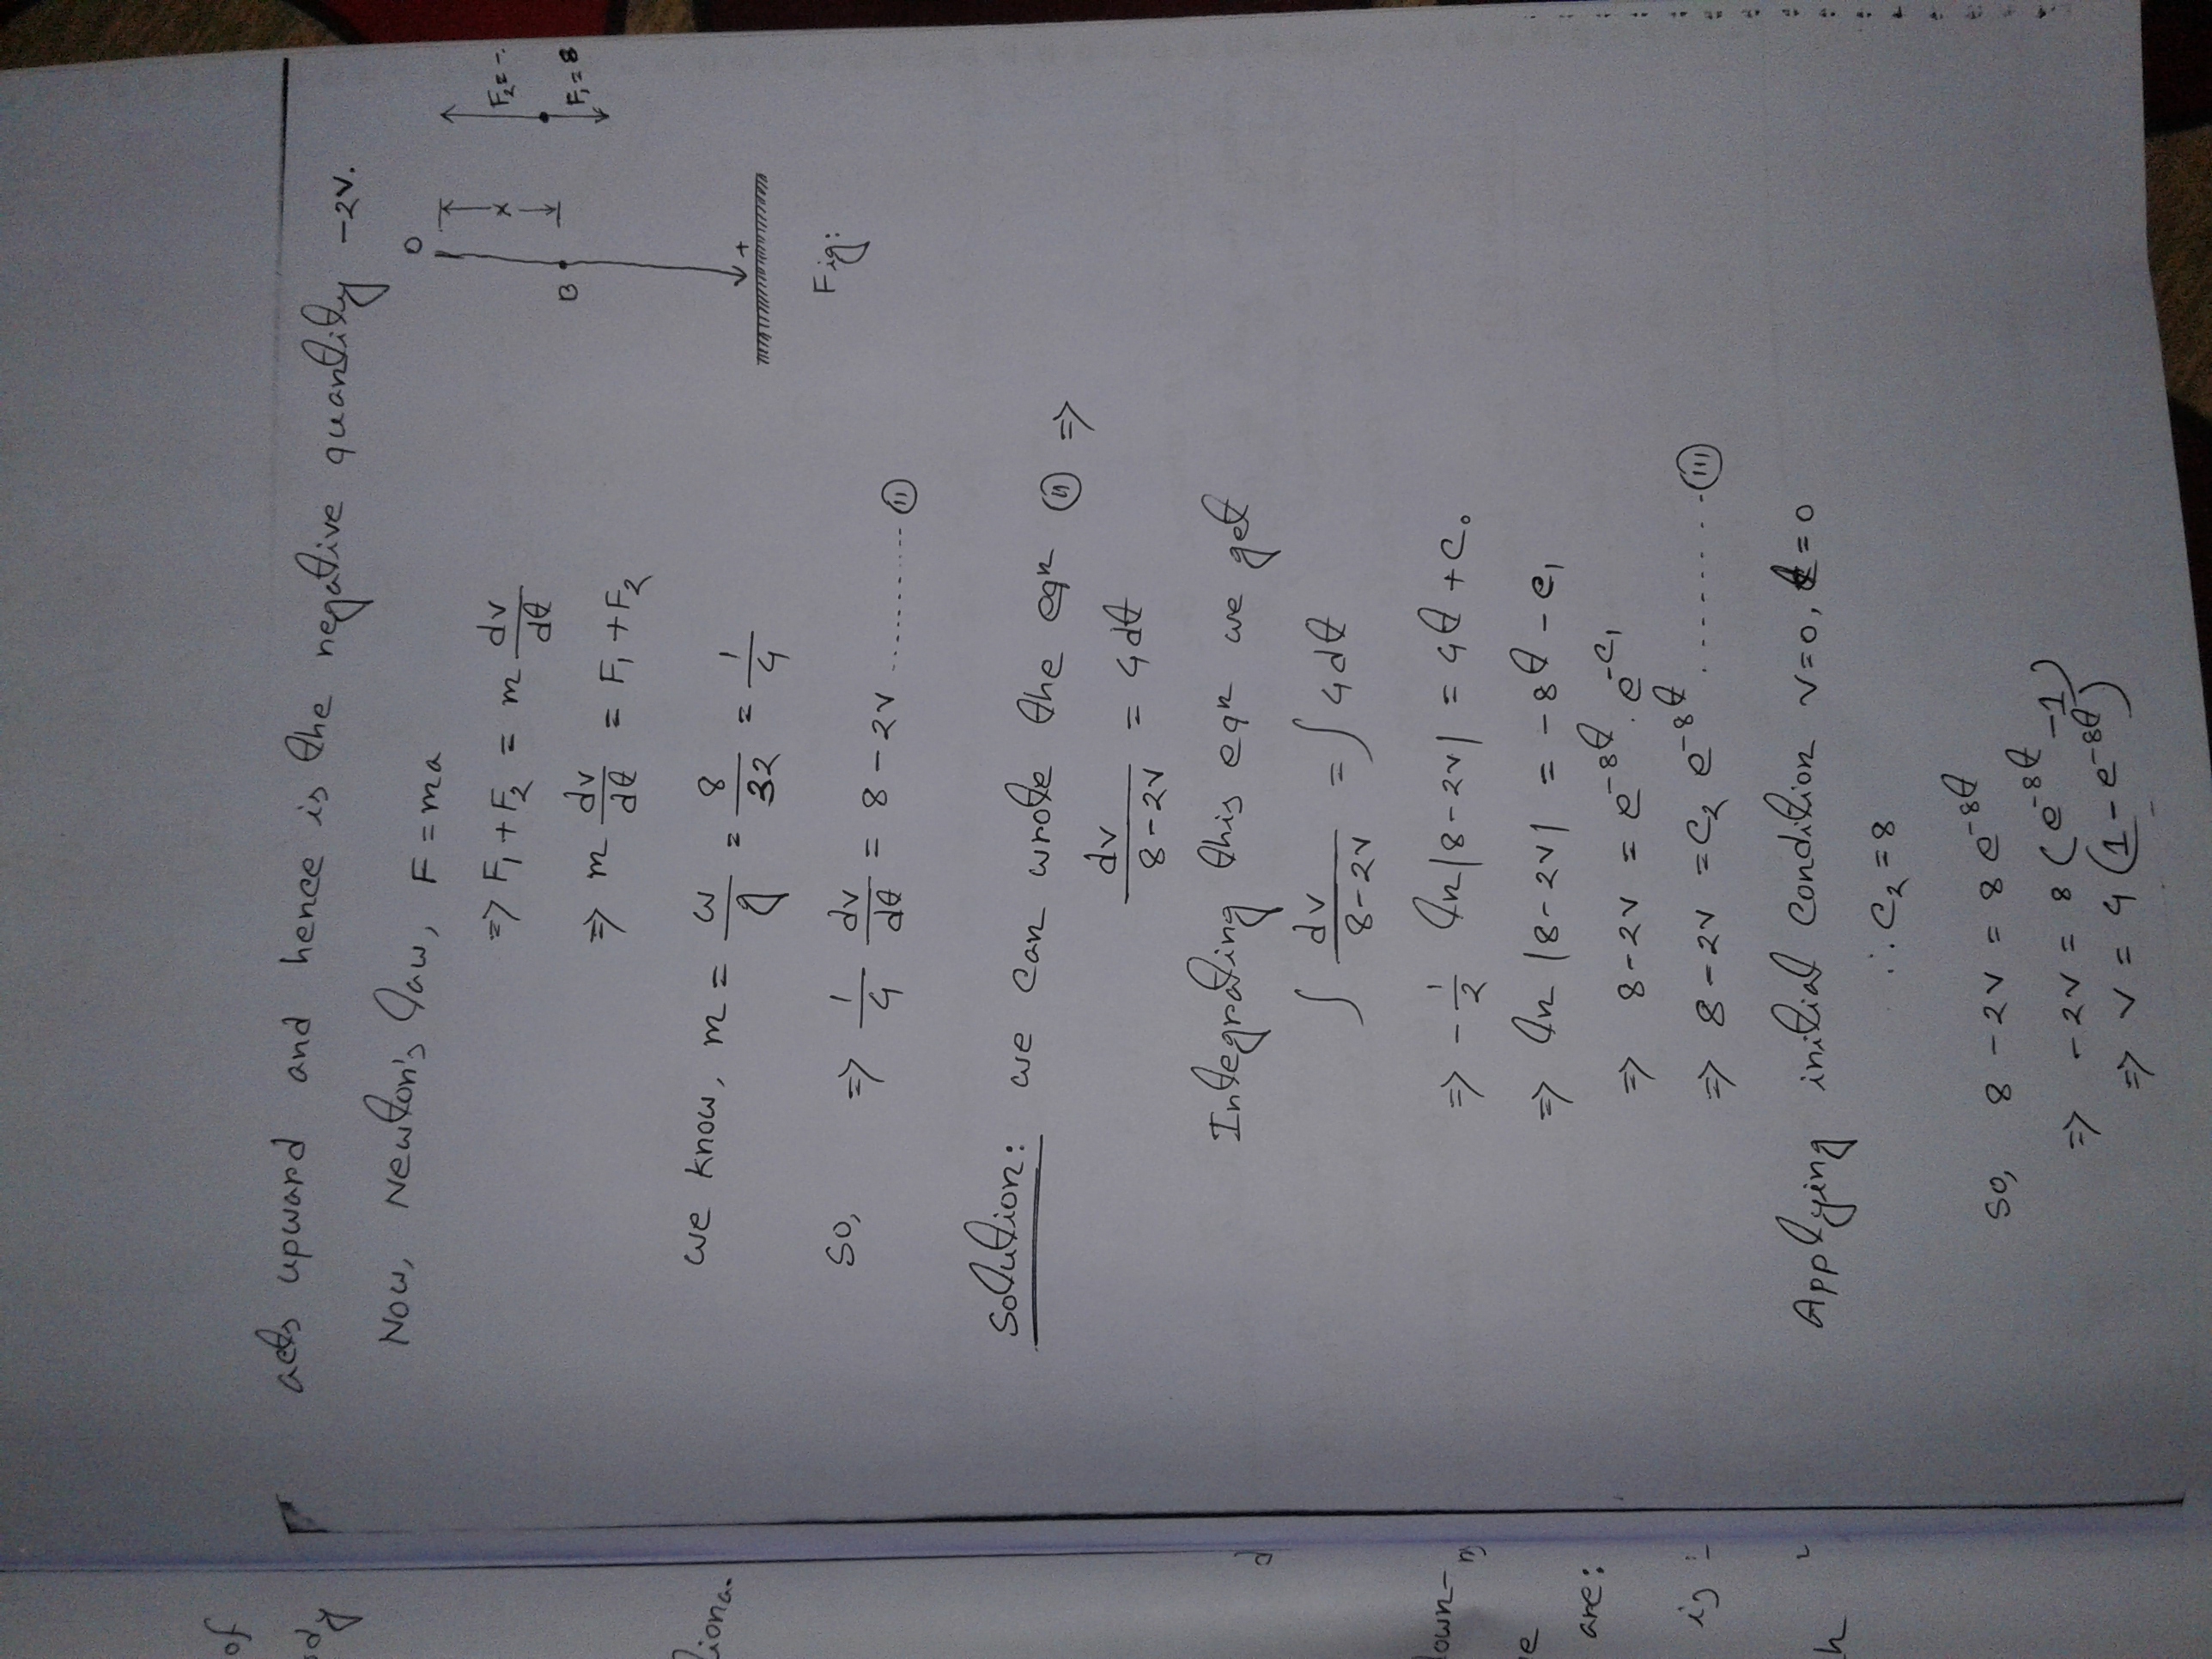 of
ody
liona-
d
down-
n
e
are:
is :-
h
acts upward and hence is the negative quantity -2v.
Now, Newton's law, F = ma
=> F₁ + F₂ = m dv/dt
=> m dv/dt = F₁ + F₂
we know, m = w/g = 8/32 = 1/4
so, => 1/4 dv/dt = 8 - 2v .......... (ii)
O
x
B
+
F₂ = -
F₁ = 8
Fig:
Solution: we can wrote the eqn (ii) =>
dv/(8-2v) = 4dt
Integrating this eqn we get
∫ dv/(8-2v) = ∫ 4dt
=> - 1/2 ln|8-2v| = 4t + c₀
=> ln |8-2v| = -8t - c₁
=> 8-2v = e^(-8t) . e^(-c₁)
=> 8-2v = c₂ e^(-8t) ......... (iii)
Applying initial condition v=0, t=0
∴ c₂ = 8
so, 8 - 2v = 8 e^(-8t)
=> -2v = 8 (e^(-8t) - 1)
=> v = 4 (1 - e^(-8t))